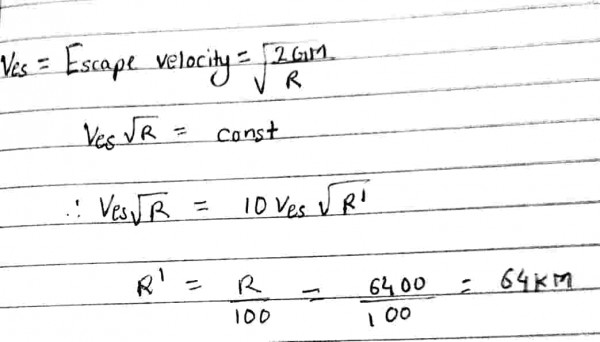 Ves = Escape velocity = √(2GM/R)
Ves √R = const
∴ Ves√R = 10 Ves √R'
R' = R/100 = 6400/100 = 64KM